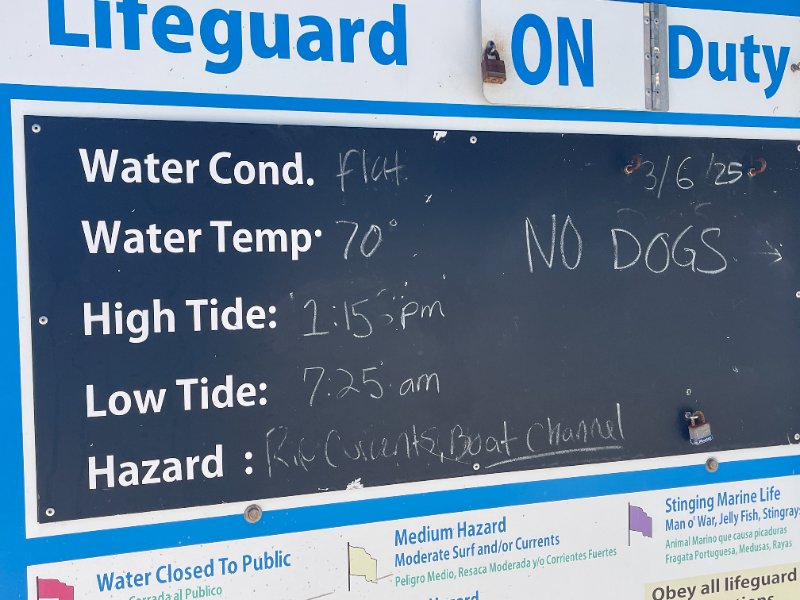 Lifeguard ON Duty
Water Cond. flat 3/6/25
Water Temp. 70° NO DOGS →
High Tide: 1:15 pm
Low Tide: 7:25 am
Hazard : Rip Currents, Boat Channel
Water Closed To Public
Cerrada al Publico
Medium Hazard
Moderate Surf and/or Currents
Peligro Medio, Resaca Moderada y/o Corrientes Fuertes
Hazard
Stinging Marine Life
Man o' War, Jelly Fish, Stingrays
Animal Marino que causa picaduras
Fragata Portuguesa, Medusas, Rayas
Obey all lifeguard